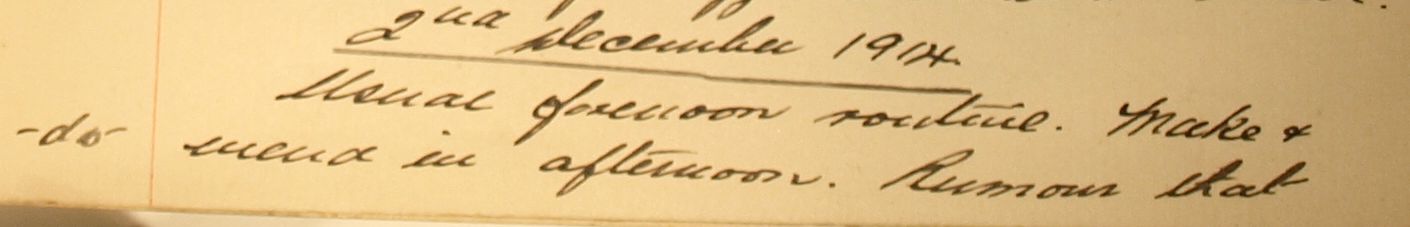 2nd December 1914.
Usual forenoon routine. Make &
-do- mend in afternoon. Rumour that